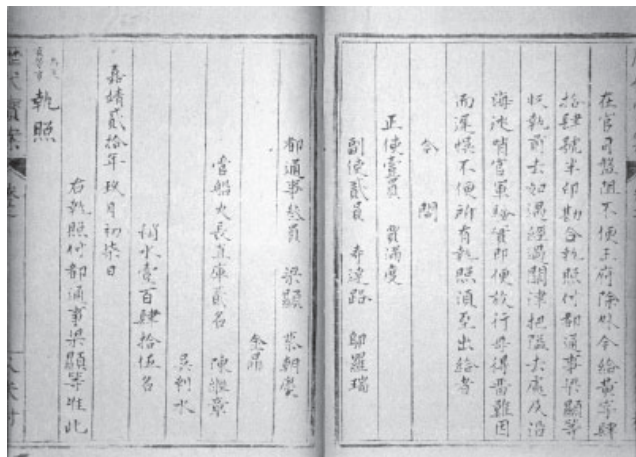 在官司盤阻不便王府除外今給黃字肆
拾肆號半印勘合執照付都通事梁顯等
收執前去如遇經過關津把隘去處及沿
海巡哨官軍驗實即便放行毋得留難因
而遲悞不便所有執照須至出給者
今開
正使壹員 賈滿度
副使貳員 布達路 鄔羅瑞
都通事叁員 梁顯 蔡朝慶
金昻
管船火長直庫貳名 陳繼章
吳刹水
稍水壹百肆拾伍名
嘉靖貳拾年玖月初柒日
右執照付都通事梁顯等准此
執照
歷代寶案